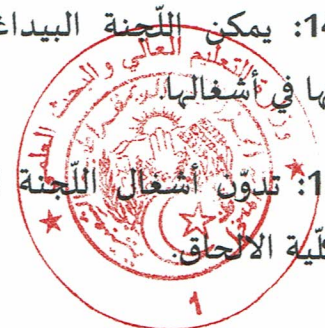 14: يمكن اللّجنة
ها في أشغالها.
1: تدوّن أشغال اللّجنة
كلّية الالحاق.
وزارة التعليم العالي و البحث العلمي
1